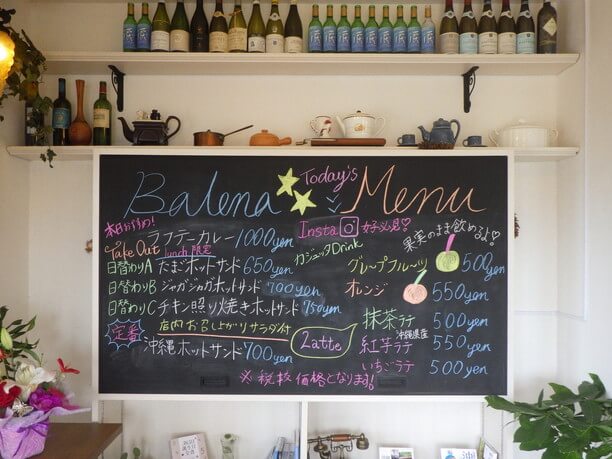 Balena Today's Menu
本日おすすめ!
ラフテーカレー 1000yen
Take Out
lunch 限定
日替わりA たまごホットサンド 650yen
日替わりB ジャガジャガホットサンド 700yen
日替わりC チキン照り焼きホットサンド 750yen
店内お召し上がりサラダ付
定番
沖縄ホットサンド 700yen
Insta 好必見♡
カジュッタDrink
果実のまま飲めるよ♡
グレープフルーツ 500yen
オレンジ 550yen
Latte
抹茶ラテ 500yen
沖縄県産
紅芋ラテ 550yen
いちごラテ 500yen
※税抜価格となります!